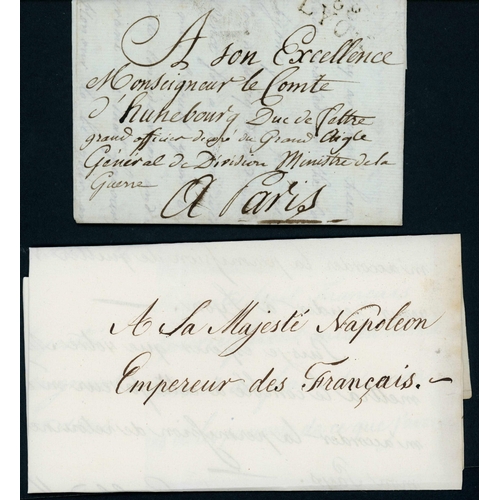 LYON
A son Excellence
Monseigneur le Comte
d'hunebourg Duc de feltre
grand officier du Grand Aigle
Général de Division Ministre de la
Guerre
A Paris
A Sa Majesté Napoleon
Empereur des Français.